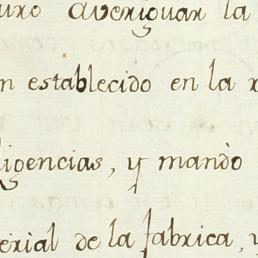 uro averiguar la
n establecido en la r
ligencias, y mando
erial de la fabrica, y